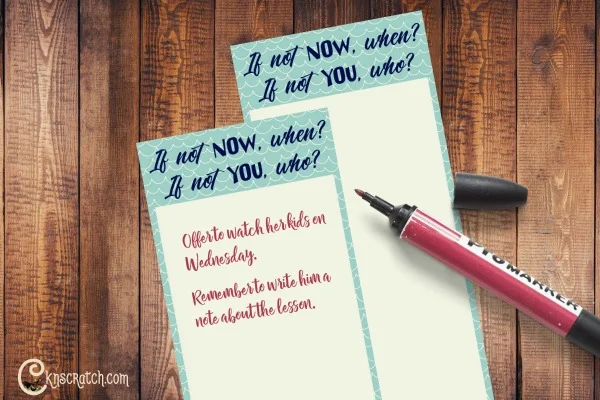 If not NOW, when?
If not YOU, who?
If not NOW, when?
If not YOU, who?
Offer to watch her kids on
Wednesday.
Remember to write him a
note about the lesson.
PTOMARKER
Cknscratch.com